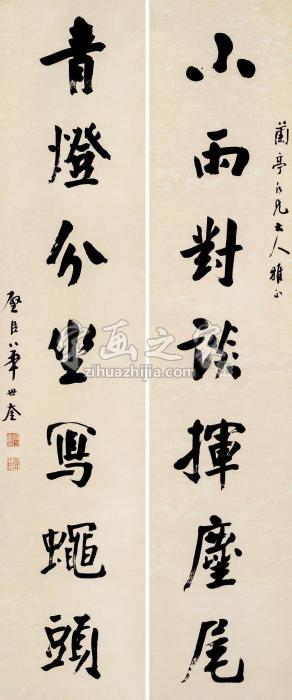 蘭亭仁兄大人雅正
小雨對談揮麈尾
青燈分坐寫蠅頭
璧臣華世奎
字画之家
zihuazhijia.com